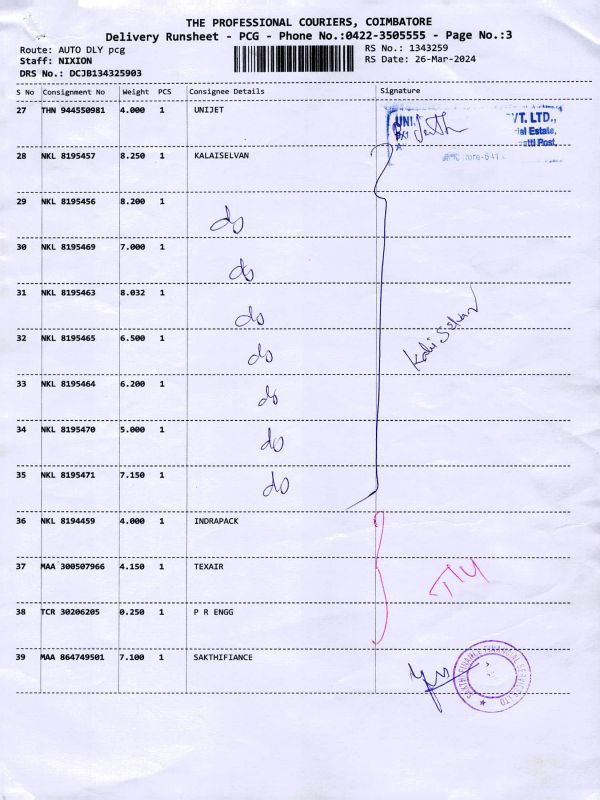 THE PROFESSIONAL COURIERS, COIMBATORE
Delivery Runsheet - PCG - Phone No.:0422-3505555 - Page No.:3
Route: AUTO DLY pcg RS No.: 1343259
Staff: NIXION RS Date: 26-Mar-2024
DRS No.: DCJB134325903
S No Consignment No Weight PCS Consignee Details Signature
27 THN 944550981 4.000 1 UNIJET
UNI VT. LTD.,
ial Estate,
atti Post,
28 NKL 8195457 8.250 1 KALAISELVAN
29 NKL 8195456 8.200 1 do
30 NKL 8195469 7.000 1 do
31 NKL 8195463 8.032 1 do
32 NKL 8195465 6.500 1 do
33 NKL 8195464 6.200 1 do
34 NKL 8195470 5.000 1 do
35 NKL 8195471 7.150 1 do
36 NKL 8194459 4.000 1 INDRAPACK
37 MAA 300507966 4.150 1 TEXAIR
38 TCR 30206205 0.250 1 P R ENGG
39 MAA 864749501 7.100 1 SAKTHIFIANCE
SAKTHI FINANCE FINANCIAL SERVICES LTD